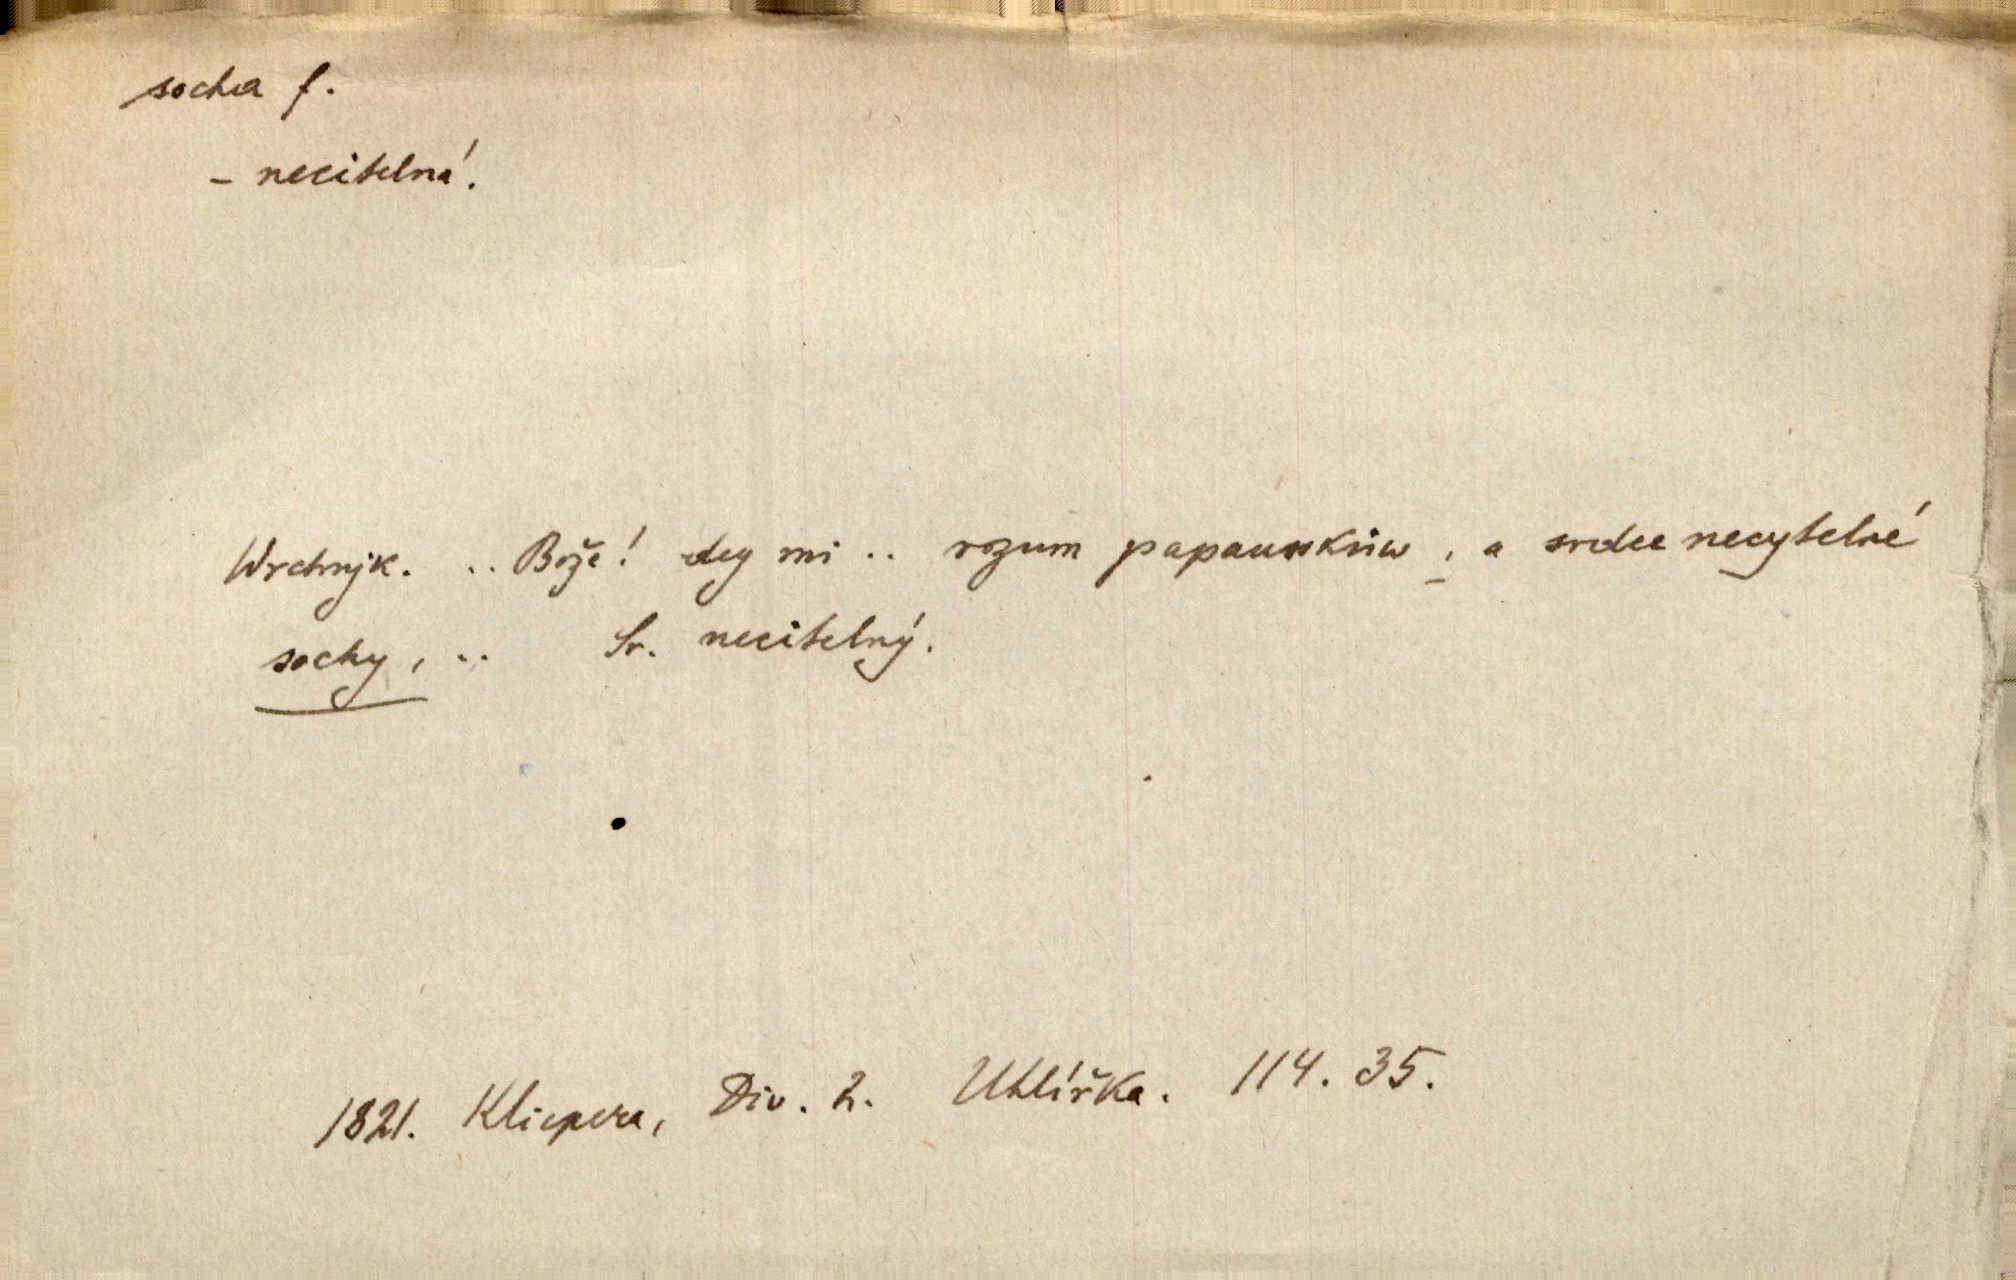 socha f.
- necitelná.
Wrchnjk. .. Bože! dey mi .. rozum papauskůw, a srdce necytelné
sochy, .. Sr. necitelný.
1821. Klicpera, Div. 2. Uhlířka. 114. 35.